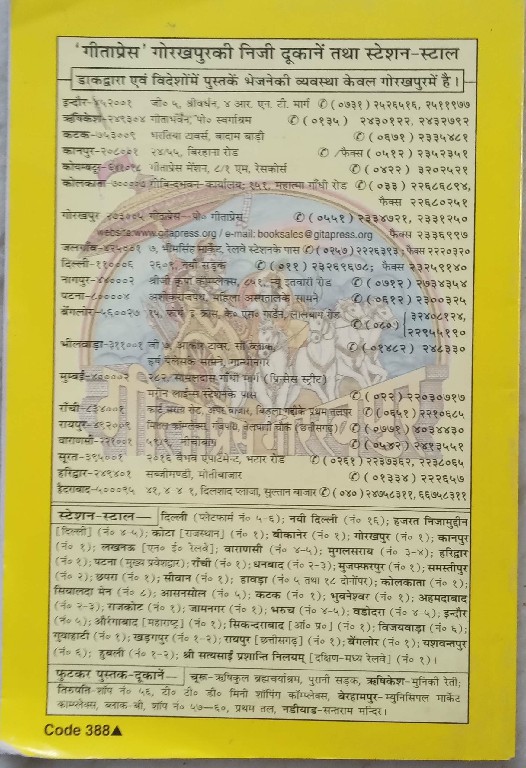 'गीताप्रेस' गोरखपुरकी निजी दूकानें तथा स्टेशन-स्टाल
डाकद्वारा एवं विदेशोंमें पुस्तकें भेजनेकी व्यवस्था केवल गोरखपुरमें है।
इन्दौर-४५२००१ जी० ५, श्रीवर्धन, ४ आर. एन. टी. मार्ग ✆ (०७३१) २५२६५१६, २५११९७७
ऋषिकेश-२४९३०४ गीताभवन, पो० स्वर्गाश्रम ✆ (०१३५) २४३०१२२, २४३२७९२
कटक-७५३००९ भरतिया टावर्स, बादाम बाड़ी ✆ (०६७१) २३३५४८१
कानपुर-२०८००१ २४/५५, बिरहाना रोड ✆ /फैक्स (०५१२) २३५२३५१
कोयम्बटूर-६४१०१८ गीताप्रेस मेंशन, ८/१ एम, रेसकोर्स ✆ (०४२२) ३२०२५२१
कोलकाता-७००००७ गोबिन्दभवन-कार्यालय; १५१, महात्मा गाँधी रोड ✆ (०३३) २२६८६८९४,
फैक्स २२६८०२५१
गोरखपुर २७३००५ गीताप्रेस—पो० गीताप्रेस ✆ (०५५१) २३३४७२१, २३३१२५०
website:www.gitapress.org / e-mail: booksales@gitapress.org फैक्स २३३६९९७
जलगाँव-४२५००१ ७, भीमसिंह मार्केट, रेलवे स्टेशनके पास ✆ (०२५७) २२२६३९३; फैक्स २२२०३२०
दिल्ली-११०००६ २६०९, नयी सड़क ✆ (०११) २३२६९६७८; फैक्स २३२५९१४०
नागपुर-४४०००२ श्रीजी कृपा कॉम्प्लेक्स, ८५१, न्यू इतवारी रोड ✆ (०७१२) २७३४३५४
पटना-८००००४ अशोकराजपथ, महिला अस्पतालके सामने ✆ (०६१२) २३००३२५
बेंगलोर-५६००२७ १५, फोर्थ 'इ' क्रास, के० एस० गार्डेन, लालबाग रोड ✆ (०८०) ३२४०८१२४,
२२९५५१९०
भीलवाड़ा-३११००१ जी ७, आकार टावर, सी ब्लाक, ✆ (०१४८२) २४८३३०
हर्ष पैलेसके सामने, गान्धीनगर
मुम्बई-४००००२ २८२, सामलदास गाँधी मार्ग (प्रिन्सेस स्ट्रीट)
मरीन लाईन्स स्टेशनके पास ✆ (०२२) २२०३०७१७
राँची-८३४००१ कार्ट सराय रोड, अपर बाजार, बिड़ला गद्दीके प्रथम तलपर ✆ (०६५१) २२१०६८५
रायपुर-४९२००९ मित्तल कॉम्प्लेक्स, गंजपारा, तेलघानी चौक (छत्तीसगढ़) ✆ (०७७१) ४०३४४३०
वाराणसी-२२१००१ ५९/९, नीचीबाग ✆ (०५४२) २४१३५५१
सूरत-३९५००१ २०१६ वैभव एपार्टमेन्ट, भटार रोड ✆ (०२६१) २२३७३६२, २२३८०६५
हरिद्वार-२४९४०१ सब्जीमण्डी, मोतीबाजार ✆ (०१३३४) २२२६५७
हैदराबाद-५०००९५ ४१, ४ ४ १, दिलशाद प्लाजा, सुल्तान बाजार ✆ (०४०) २४७५८३११, ६६७५८३११
स्टेशन-स्टाल— दिल्ली (प्लेटफार्म नं० ५-६); नयी दिल्ली (नं० १६); हजरत निजामुद्दीन
[दिल्ली] (नं० ४-५); कोटा [राजस्थान] (नं० १); बीकानेर (नं० १); गोरखपुर (नं० १); कानपुर
(नं० १); लखनऊ [एन० ई० रेलवे]; वाराणसी (नं० ४-५); मुगलसराय (नं० ३-४); हरिद्वार
(नं० १); पटना (मुख्य प्रवेशद्वार); राँची (नं० १); धनबाद (नं० २-३); मुजफ्फरपुर (नं० १); समस्तीपुर
(नं० २); छपरा (नं० १); सीवान (नं० १); हावड़ा (नं० ५ तथा १८ दोनोंपर); कोलकाता (नं० १);
सियालदा मेन (नं० ८); आसनसोल (नं० ५); कटक (नं० १); भुवनेश्वर (नं० १); अहमदाबाद
(नं० २-३); राजकोट (नं० १); जामनगर (नं० १); भरुच (नं० ४-५); वडोदरा (नं० ४-५); इन्दौर
(नं० ५); औरंगाबाद [महाराष्ट्र] (नं० १); सिकन्दराबाद [आं० प्र०] (नं० १); विजयवाड़ा (नं० ६);
गुवाहाटी (नं० १); खड़गपुर (नं० १-२); रायपुर [छत्तीसगढ़] (नं० १); बेंगलोर (नं० १); यशवन्तपुर
(नं० ६); हुबली (नं० १-२); श्री सत्यसाईं प्रशान्ति निलयम् [दक्षिण-मध्य रेलवे] (नं० १)।
फुटकर पुस्तक-दूकानें— चूरू-ऋषिकुल ब्रह्मचर्याश्रम, पुरानी सड़क, ऋषिकेश-मुनिकी रेती;
तिरुपति-शॉप नं० ५६, टी० टी० डी० मिनी शॉपिंग कॉम्प्लेक्स, बेरहामपुर-म्युनिसिपल मार्केट
काम्प्लेक्स, ब्लाक-बी, शॉप नं० ५७—६०, प्रथम तल, नडीयाड-सन्तराम मन्दिर।
Code 388▲